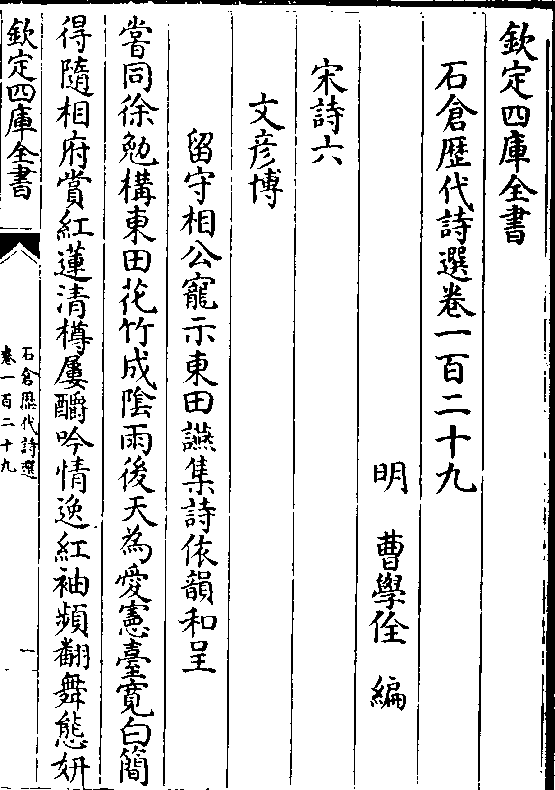 欽定四庫全書
石倉歴代詩選卷一百二十九
明 曹學佺 編
宋詩六
文彦博
留守相公寵示東田讌集詩依韻和呈
嘗同徐勉構東田花竹成陰雨後天為愛憲臺寛白簡
得隨相府賞紅蓮清樽屢酹吟情逸紅袖頻翻舞態妍
欽定四庫全書
石倉歴代詩選
卷一百二十九
一